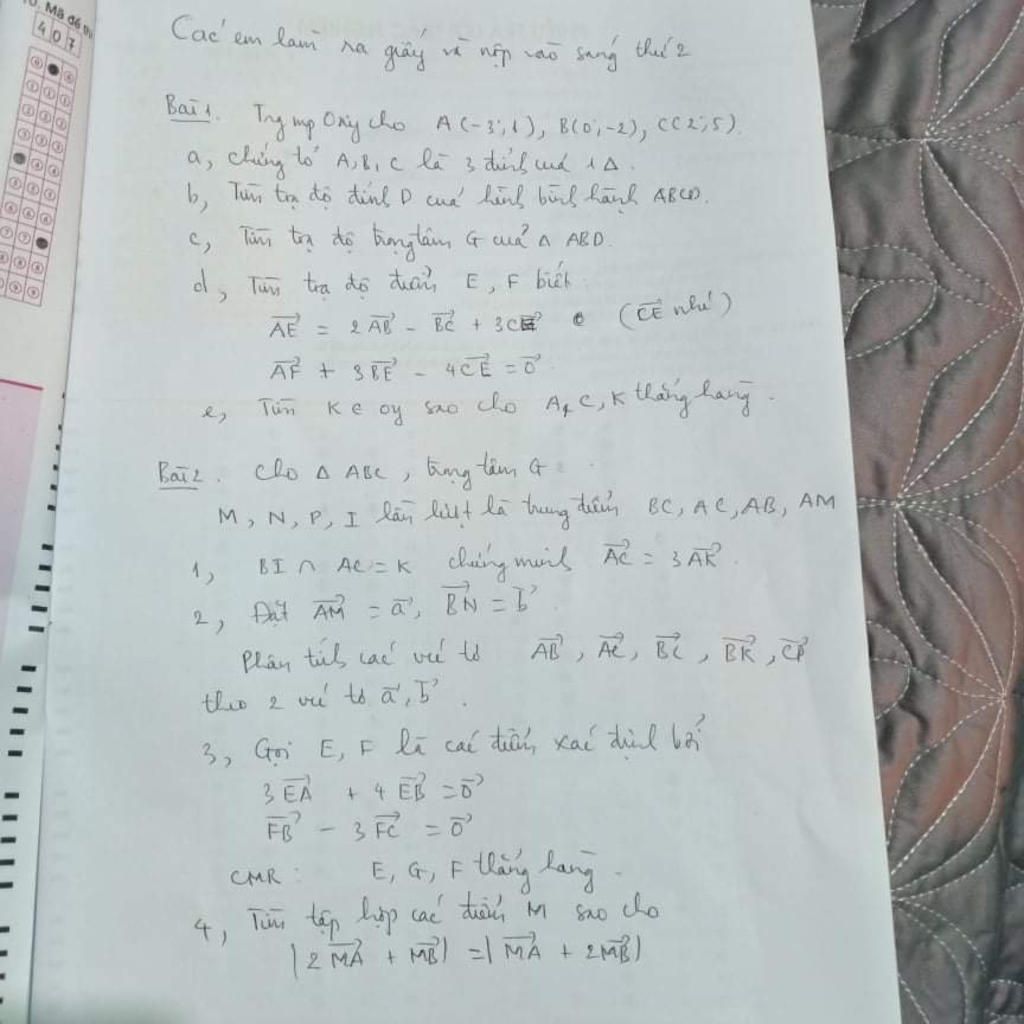 Mã đề thi
407
Các em làm ra giấy và nộp vào sáng thứ 2
Bài 1. Trg mp Oxy cho A(-3;1), B(0;-2), C(2;5).
a, chứng tỏ A, B, C là 3 đỉnh của 1 Δ.
b, Tìm tọa độ đỉnh D của hình bình hành ABCD.
c, Tìm tọa độ trọng tâm G của Δ ABD.
d, Tìm tọa độ điểm E, F biết
AE→ = 2AB→ - BC→ + 3CE→ (CE→ nhé)
AF→ + 3BE→ - 4CE→ = 0→.
e, Tìm K ∈ oy sao cho A, C, K thẳng hàng.
Bài 2. Cho Δ ABC, trọng tâm G.
M, N, P, I lần lượt là trung điểm BC, AC, AB, AM
1, BI ∩ AC = K chứng minh AC→ = 3AK→.
2, Đặt AM→ = a→, BN→ = b→.
Phân tích các véc tơ AB→, AC→, BC→, BK→, CP→
theo 2 véc tơ a→, b→.
3, Gọi E, F là các điểm xác định bởi
3EA→ + 4EB→ = 0→
FB→ - 3FC→ = 0→
CMR: E, G, F thẳng hàng.
4, Tìm tập hợp các điểm M sao cho
|2MA→ + MB→| = |MA→ + 2MB→|